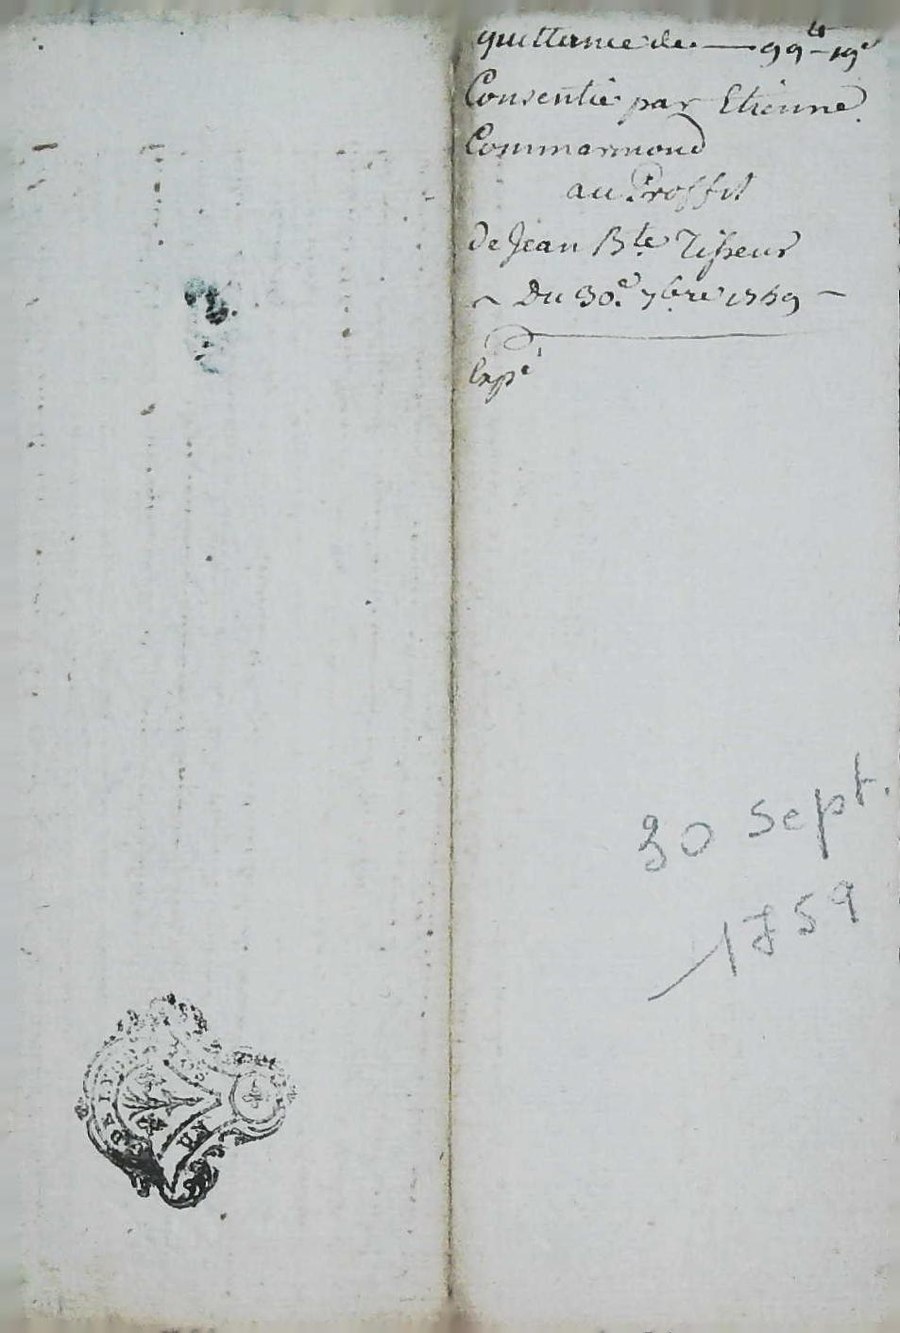 quittance de — 99ᵗᵗ 19ˢ
Consentie par Etienne
Commarmond
au Proffit
de Jean Bte Tisseur
Du 30e 7bre 1759
Expé
30 Sept.
1759
DE LYON